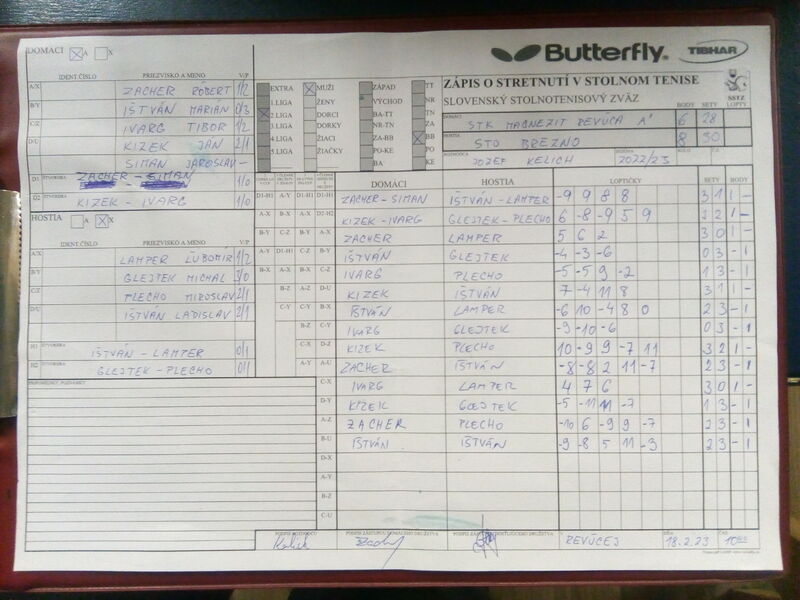 DOMÁCI A X
Butterfly. TIBHAR
IDENT.ČÍSLO PRIEZVISKO A MENO V/P
ZÁPIS O STRETNUTÍ V STOLNOM TENISE
SLOVENSKÝ STOLNOTENISOVÝ ZVÄZ
SSTZ
BODY SETY LOPTY
A/X ZACHER RÓBERT 1/2
B/Y IŠTVÁN MARIÁN 0/3
C/Z IVARG TIBOR 1/2
D/U KIZEK JÁN 2/1
SIMAN JAROSLAV -
D1 ŠTVORHRA ZACHER - SIMAN 1/0
D2 ŠTVORHRA KIZEK - IVARG 1/0
EXTRA MUŽI ZÁPAD TT
1.LIGA ŽENY VÝCHOD NR
2.LIGA DORCI BA-TT TN
3.LIGA DORKY NR-TN ZA
4.LIGA ŽIACI ZA-BB BB
5.LIGA ŽIAČKY PO-KE PO
BA KE
DOMÁCI STK MAGNEZIT REVÚCA A' 6 28
HOSTIA STO BREZNO 8 30
ROZHODCA JOZEF KELICH 2022/23
HOSTIA A X
IDENT.ČÍSLO PRIEZVISKO A MENO V/P
A/X LAMPER ĽUBOMÍR 1/2
B/Y GLEJTEK MICHAL 3/0
C/Z PLECHO MIROSLAV 2/1
D/U IŠTVÁN LADISLAV 2/1
H1 ŠTVORHRA IŠTVÁN - LAMPER 0/1
H2 ŠTVORHRA GLEJTEK - PLECHO 0/1
DOMÁCI HOSTIA LOPTIČKY SETY BODY
D1-H1 A-Y A-Y D1-H1 ZACHER - SIMAN IŠTVÁN - LAMPER -9 9 8 8 3 1 1 -
A-X B-X B-X D2-H2 KIZEK - IVARG GLEJTEK - PLECHO 6 -8 -9 5 9 3 2 1 -
B-Y C-Z A-X ZACHER LAMPER 5 6 2 3 0 1 -
A-Y D1-H1 C-Z B-Y IŠTVÁN GLEJTEK -4 -3 -6 0 3 - 1
B-X A-X B-X C-Z IVARG PLECHO -5 -5 9 -2 1 3 - 1
B-Z A-Z D-U KIZEK IŠTVÁN 7 -4 11 8 3 1 1 -
C-Y C-Y B-X IŠTVÁN LAMPER -6 10 -4 8 0 2 3 - 1
B-Z C-Y IVARG GLEJTEK -9 -10 -6 0 3 - 1
C-X D-Z KIZEK PLECHO 10 -9 9 -7 11 3 2 1 -
A-Y A-U ZACHER IŠTVÁN -8 -8 2 11 -7 2 3 - 1
C-X IVARG LAMPER 4 7 6 3 0 1 -
D-Y KIZEK GLEJTEK -5 -11 11 -7 1 3 - 1
A-Z ZACHER PLECHO -10 6 -9 9 -7 2 3 - 1
B-U IŠTVÁN IŠTVÁN -9 -8 5 11 -3 2 3 - 1
D-X
A-Y
B-Z
C-U
PRIPOMIENKY, POZNÁMKY
PODPIS ROZHODCU PODPIS ZÁSTUPCU DOMÁCEHO DRUŽSTVA PODPIS ZÁSTUPCU HOSŤUJÚCEHO DRUŽSTVA
Kelich
V REVÚCEJ DŇA 18.2.23 ČAS 10